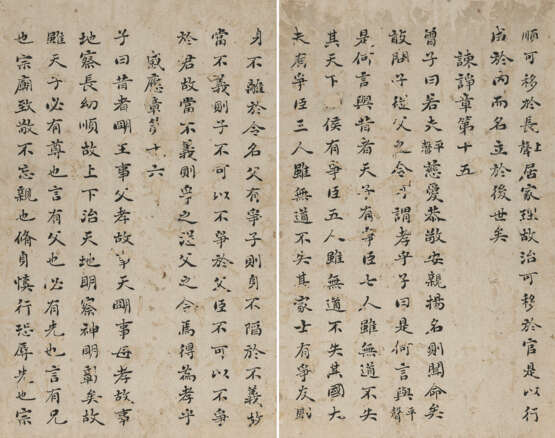 順可移於長上聲居家理故治可移於官是以行
成於內而名立於後世矣
諫諍章第十五
曾子曰若夫平聲慈愛恭敬安親揚名則聞命矣
敢問子從父之令可謂孝乎子曰是何言與平聲
是何言與昔者天子有爭臣七人雖無道不失
其天下侯有爭臣五人雖無道不失其國大
夫有爭臣三人雖無道不失其家士有爭友則
身不離於令名父有爭子則身不陷於不義故
當不義則子不可以不爭於父臣不可以不爭
於君故當不義則爭之從父之令焉得為孝乎
感應章第十六
子曰昔者明王事父孝故事天明事母孝故事
地察長幼順故上下治天地明察神明彰矣故
雖天子必有尊也言有父也必有先也言有兄
也宗廟致敬不忘親也脩身慎行恐辱先也宗